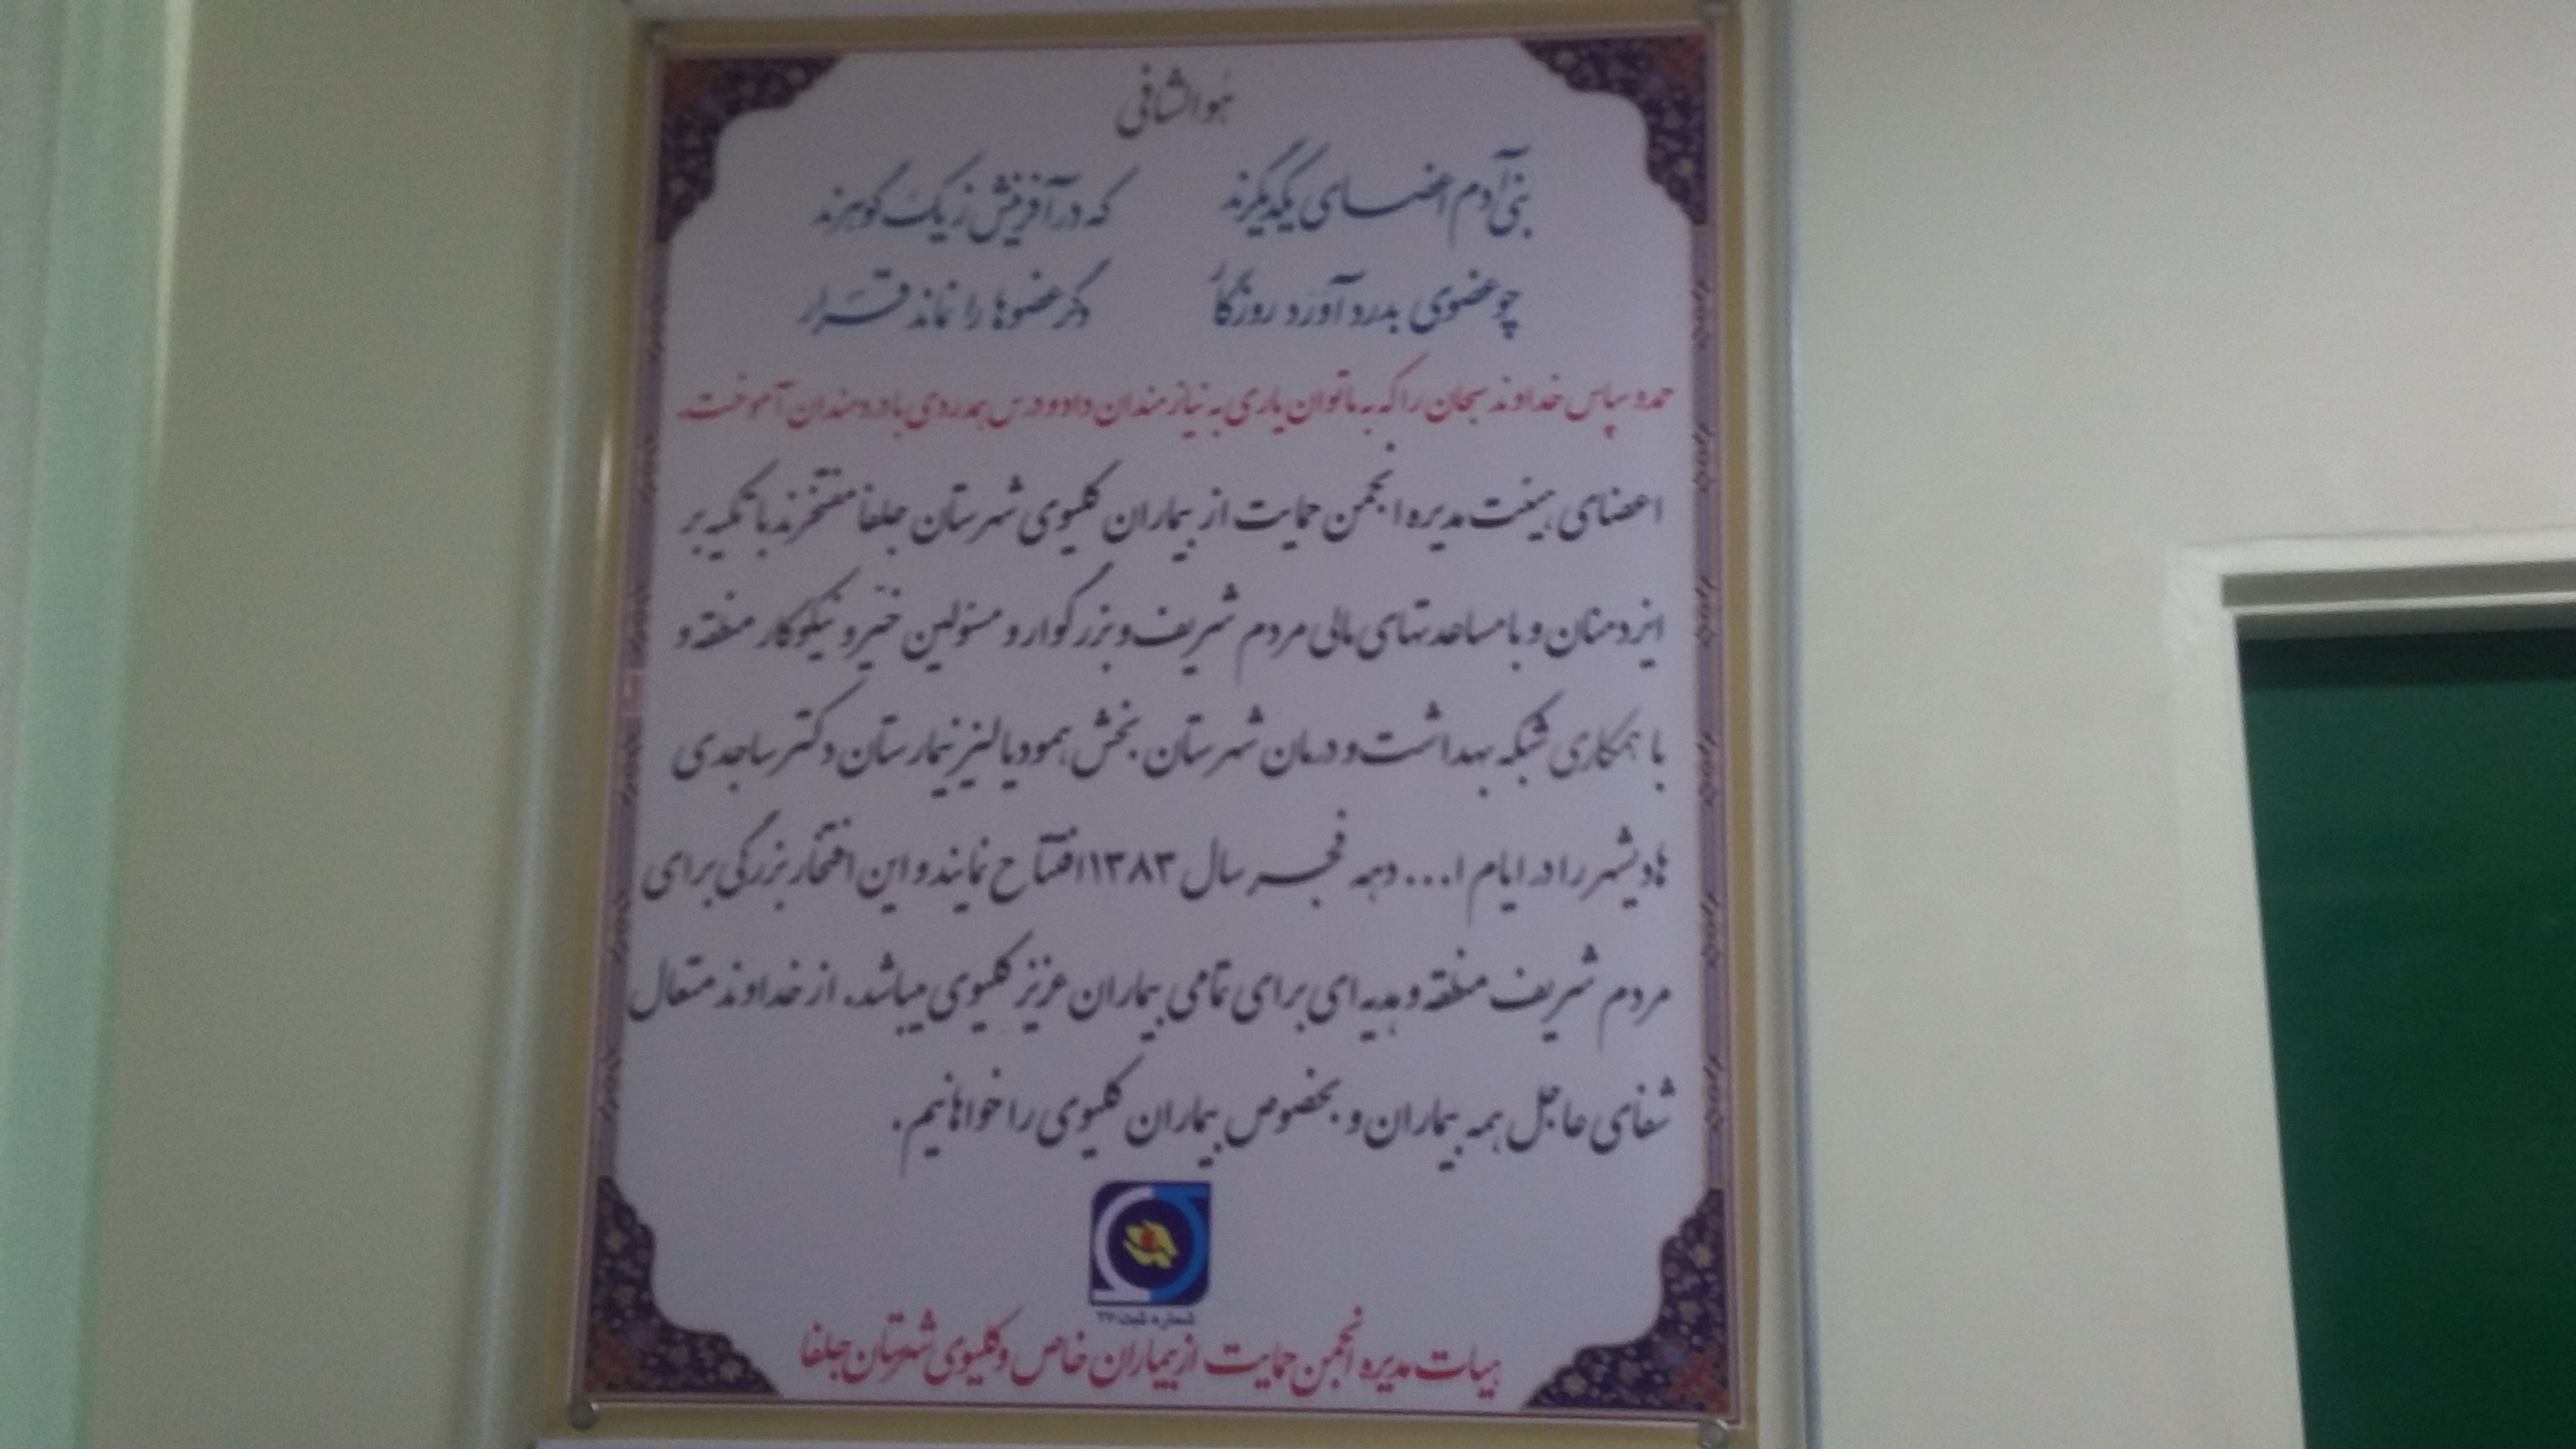 هوالشافی
بنی آدم اعضای یکدیگرند که در آفرینش ز یک گوهرند
چو عضوی بدرد آورد روزگار دگر عضوها را نماند قرار
حمد و سپاس خداوند سبحان را که به ما توان یاری به نیازمندان داد و درس همدردی با دردمندان آموخت.
اعضای هیئت مدیره انجمن حمایت از بیماران کلیوی شهرستان جلفا مفتخرند با تکیه بر
ایزد منان و با مساعدتهای مالی مردم شریف و بزرگوار و مسئولین خیر و نیکوکار منطقه و
با همکاری شبکه بهداشت و درمان شهرستان بخش همودیالیز بیمارستان دکتر ساجدی
هادیشهر را در ایام ا... دهه فجر سال ۱۳۸۳ افتتاح نمایند و این افتخار بزرگی برای
مردم شریف منطقه و هدیه ای برای تمامی بیماران عزیز کلیوی میباشد. از خداوند متعال
شفای عاجل همه بیماران و بخصوص بیماران کلیوی را خواهانیم.
شماره ثبت: ۲۷
هیات مدیره انجمن حمایت از بیماران خاص و کلیوی شهرستان جلفا